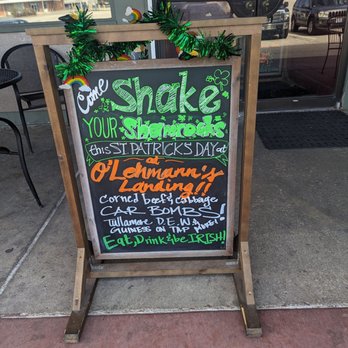 Come
Shake
YOUR Shamrocks
this ST. PATRICKS DAY at
at
O'Lehmann's
Landing!!
Corned beef & cabbage
CAR BOMBS!
Tullamore D.E.W.
GUINESS ON TAP
Eat, Drink & be IRISH!